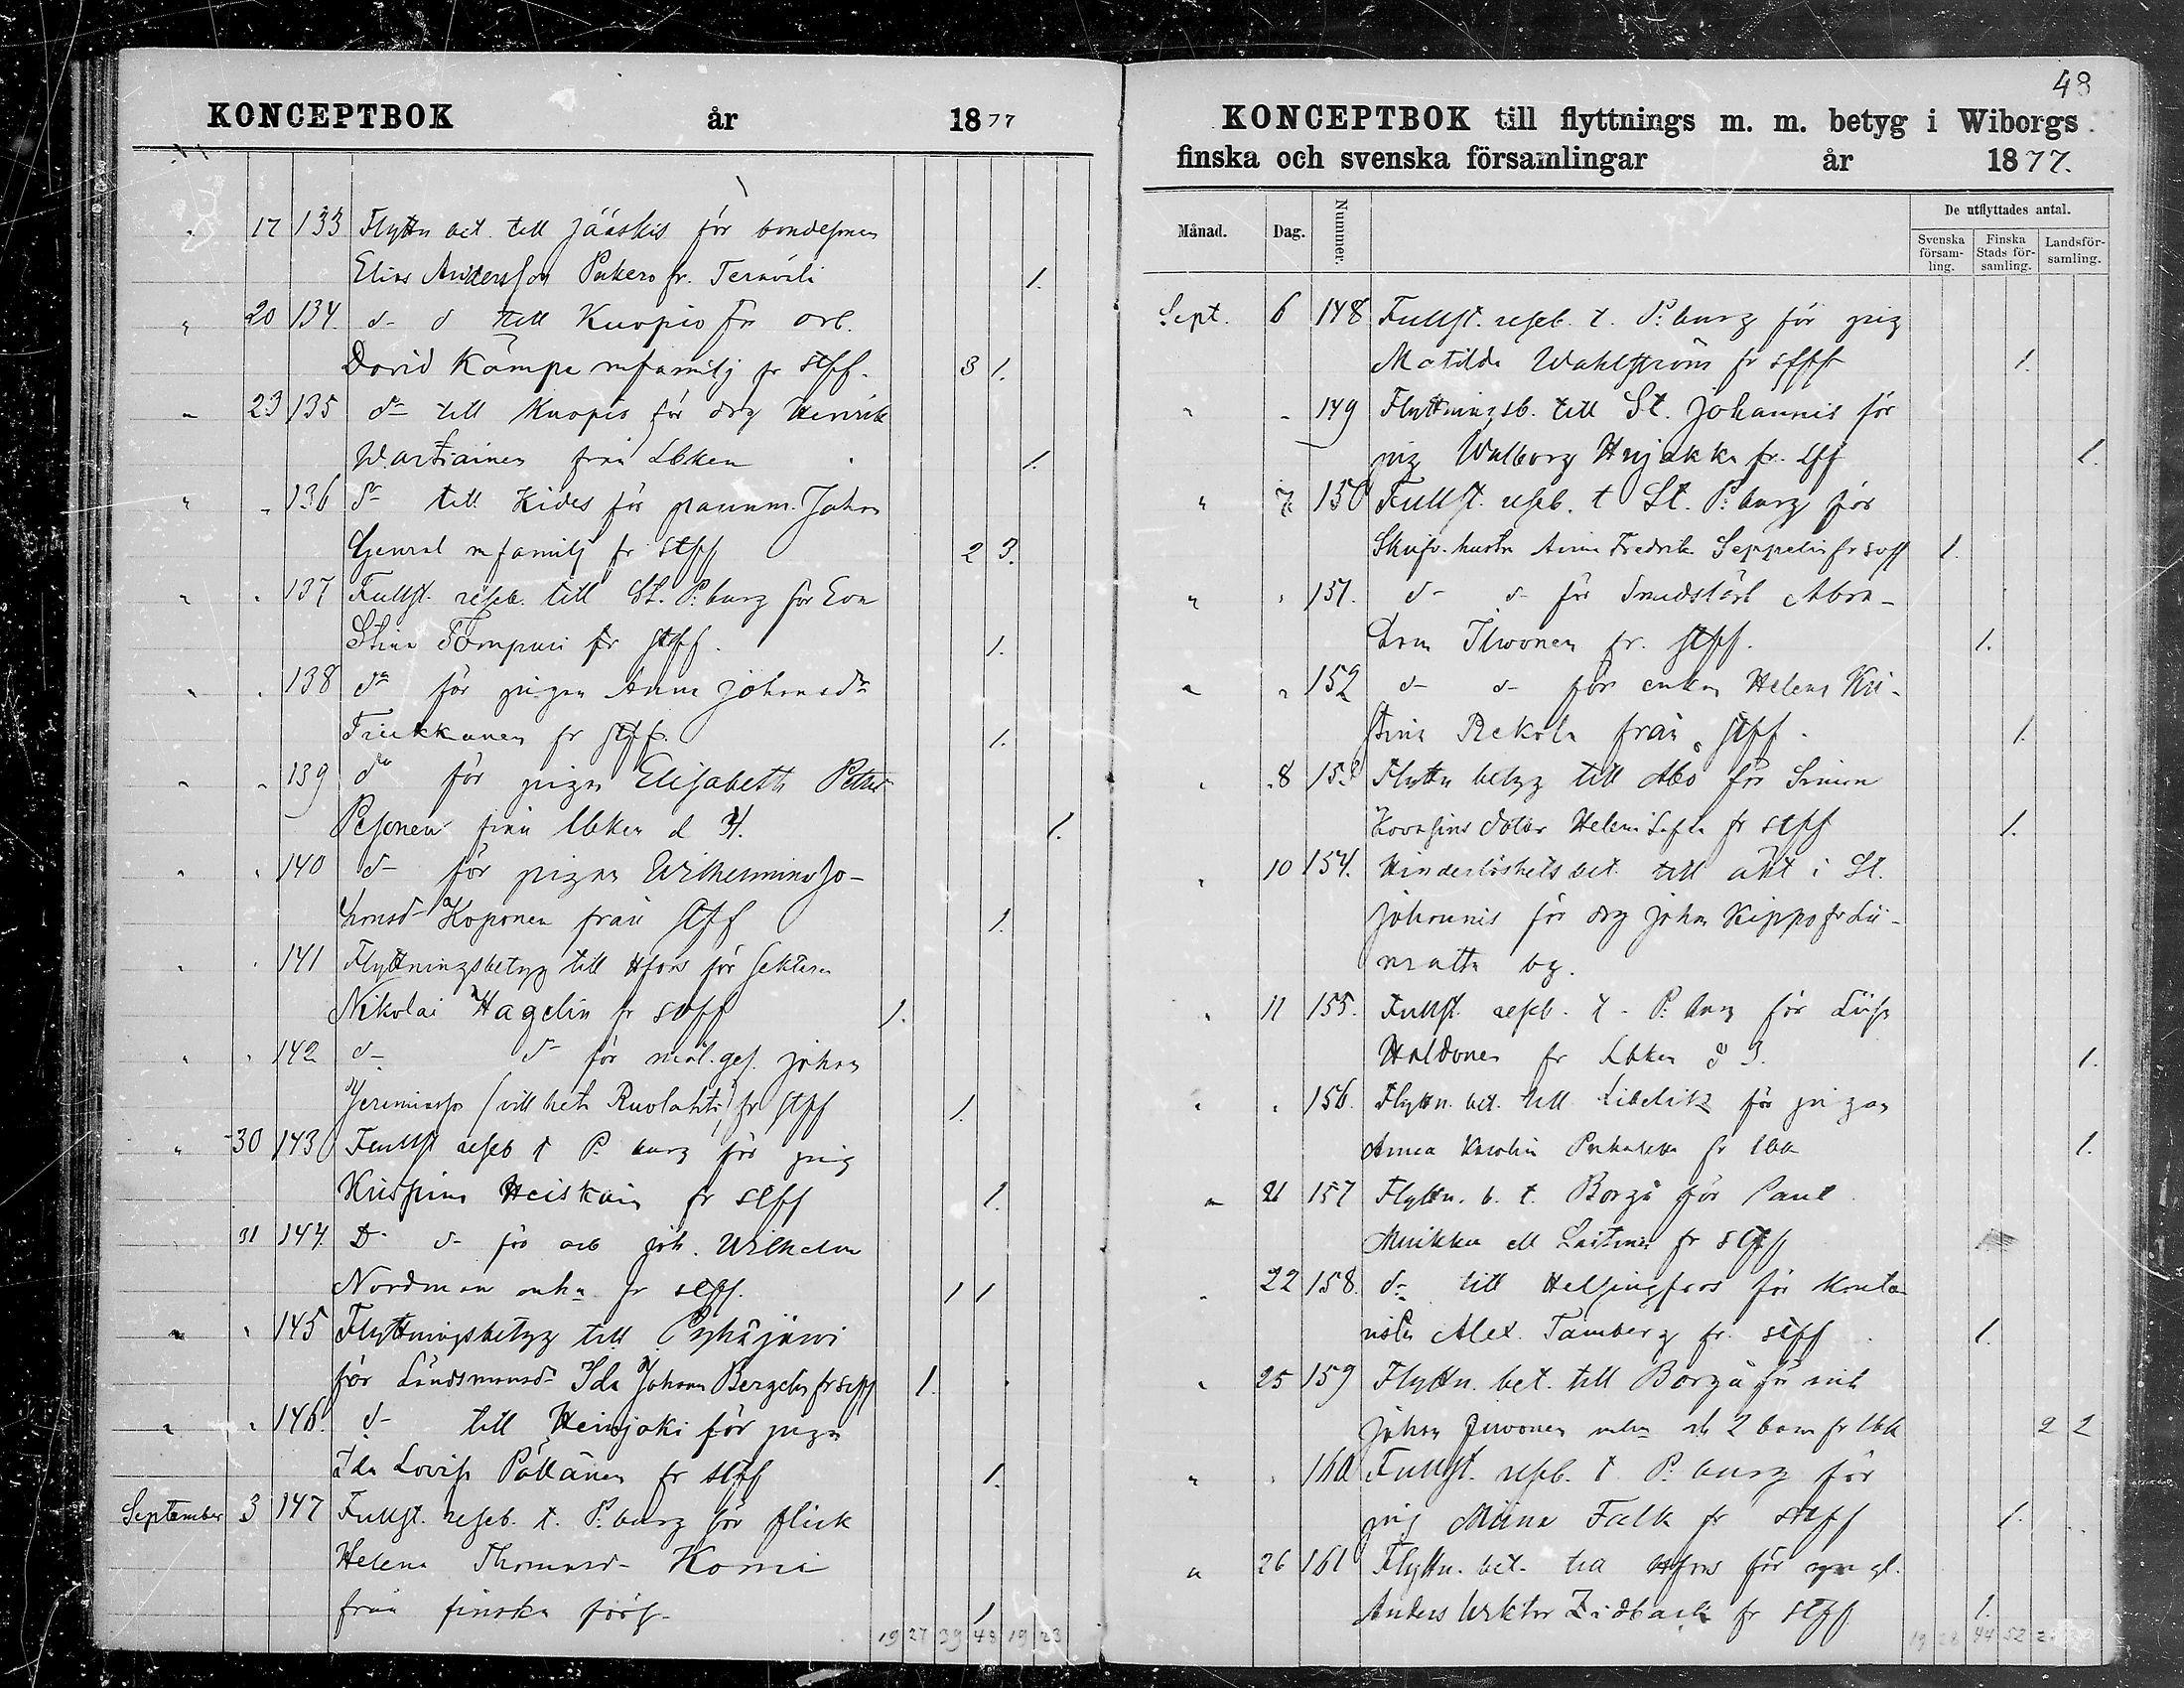 KONCEPTBOK år 1877
" 17 133 Flyttn bet. till Jääskis för bondesonen
Elias Andersson Pukero fr. Terävälä 1.
" 20 134. d- d till Kuopio för arb.
David Kämpe m familj fr stff. 3 1.
" 23 135 d- till Kuopio för drg Henrik
Wartiainen från Lbken 1.
" " 136 d- till Kides för Johan
m familj fr stff 2 3.
" " 137 Fullst. reseb. till St. P:burg för Eva
Stina Tompuri fr stff. 1.
" " 138 dn för pigan Anna Johansdr
Tirkkanen fr stff. 1.
" " 139 dn för pigan Elisabeth Petersd
Pesonen från lbken d 31. 1.
" " 140 d- för pigan Wilhelmina Jo-
hansd- Koponen från stff 1.
" " 141 Flyttningsbetyg till Hfors för
Nikolai Hagelin fr svff 1.
" " 142 d- d- för mål.ges. Johan
Jeremiasson (vill heta Ruolahti) fr stff 1.
" 30 143 Fullst reseb t P. burg för pig
Kristina Heiskain fr stff 1.
31 144. D- d- för arb Joh. Wilhelm
Nordman fr stff. 1 1
" " 145 Flyttningsbetyg till Pyhäjärvi
för Länsmansd- Ida Johanna Bergelin fr svff 1.
" " 146. d- till Heinjoki för pigan
Ida Lovisa Pällänen fr stff 1.
September 3 147 Fullst. reseb. t. P:burg för flick
Helena Thomasd- Komi
från finska förs- 1
19 27 39 48 19 23
48
KONCEPTBOK till flyttnings m. m. betyg i Wiborgs
finska och svenska församlingar år 1877.
Månad. Dag. Nummer. De utflyttades antal.
Svenska försam- ling. Finska Stads för- samling. Landsför- samling.
Sept. 6 148 Fullst. reseb. t. P:burg för pig
Matilda Wahlström fr stff 1.
" - 149 Flyttningsb. till St. Johannis för
pig Walborg Hujakka fr. lff 1.
" 7 150 Fullst. reseb. t St. P:burg för
hustru Anna Fredrika Seppelin fr svff 1.
" " 151. d- d- för Abra-
ham Ilwonen fr. stff. 1.
" " 152 d- d- för enkan Helena Kri-
stina Rekola från stff. 1.
" 8 153 Flyttn betyg till Åbo för Simon
dotter Helena Sofia fr stff 1.
" 10 154. Hinderlöshets bet. till äkt i St.
Johannis för drg Johan Kippo fr Lii-
matta by.
" 11 155. Fullst reseb. t. P:burg för Liisa
Haldonen fr Lbken d 3. 1.
" " 156. Flyttn. bet. till Libelits för pigan
Anna Karolin fr lbk 1.
" 21 157 Flyttn. b. t. Borgå för Paul
Muikku ell Laitinen fr stff
" 22 158. d- till Helsingfors för
Alex. Tamberg fr. stff 1.
" 25 159 Flyttn. bet. till Borgå för
Johan m 2 barn fr lbk 2 2
" " 160 Fullst. reseb. t. P:burg för
pig Miina Falk fr stff 1.
" 26 161 Flyttn. bet. till Hfors för
Anders Wiktor Zidbäck fr stff 1.
19 28 44 52